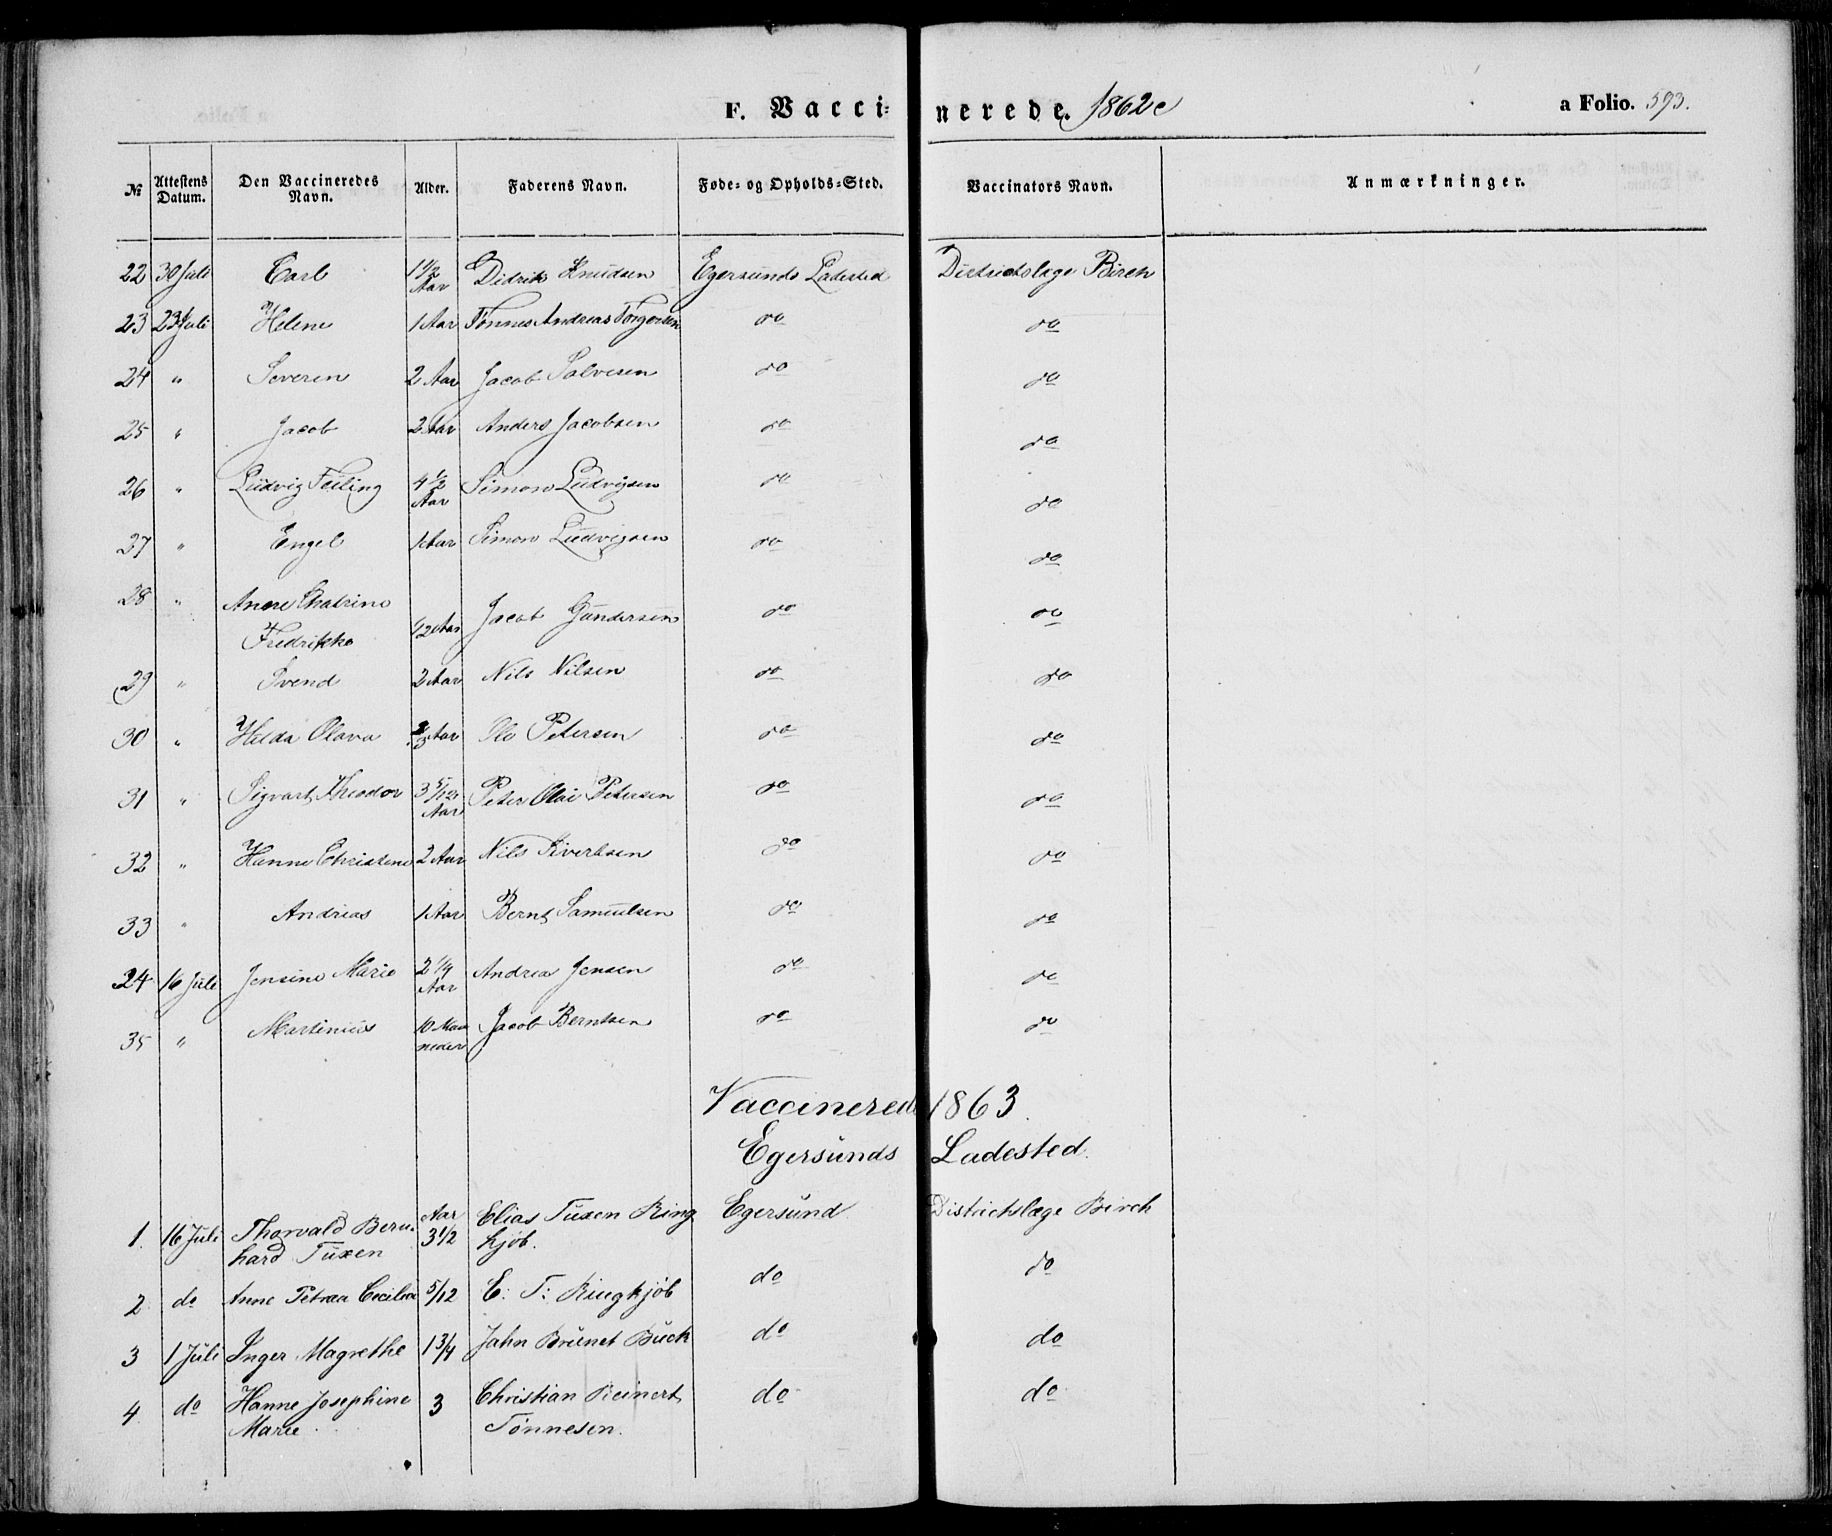 F. Vaccinerede. 1862
a Folio. 593.
№ | Attestens Datum. | Den Vaccineredes Navn. | Alder. | Faderens Navn. | Føde- og Opholds-Sted. | Vaccinators Navn. | Anmærkninger.
22 | 30 Juli | Carl | 1 1/2 Aar | Didrik Knudsen | Egersunds Ladested | Districtslæge Birch
23 | 23 Juli | Helene | 1 Aar | Tønnes Andreas Torgersen | do | do
24 | " | Severin | 2 Aar | Jacob Salvesen | do | do
25 | " | Jacob | 2 Aar | Anders Jacobsen | do | do
26 | " | Ludvig Feiling | 4 1/2 Aar | Simon Ludvigsen | do | do
27 | " | Engel | 1 Aar | Simon Ludvigsen | do | do
28 | " | Anne Chatrine
Fredrikke | 1/2 Aar | Jacob Gundersen | do | do
29 | " | Svend | 2 Aar | Nils Nilsen | do | do
30 | " | Helda Olava | Aar | Ole Petersen | do | do
31 | " | Sigvart Theodor | 3 5/12 Aar | Peter Olai Petersen | do | do
32 | " | Hanne Christene | 2 Aar | Nils Sivertsen | do | do
33 | " | Andreas | 1 Aar | Bernt Samuelsen | do | do
34 | 16 Juli | Jensine Marie | 2 1/4 Aar | Andrea Jensen | do | do
35 | " | Martinius | 10 Maaneder | Jacob Berntsen | do | do
Vaccinerede 1863.
Egersunds Ladested.
1. | 16 Juli | Thorvald Bern-
hard Tuxen | Aar 3 1/2 | Elias Tuxen Ring
kjøb. | Egersund | Districtslæge Birch
2 | do | Anne Petrea Cecilia | 5/12 | E: T: Ringkjøb | do | do
3 | 1 Juli | Inger Magrethe | 1 3/4 | Jahn Brunet Buck | do | do
4 | do | Hanne Josephine
Marie | 3 | Christian Reinert
Tønnesen. | do | do